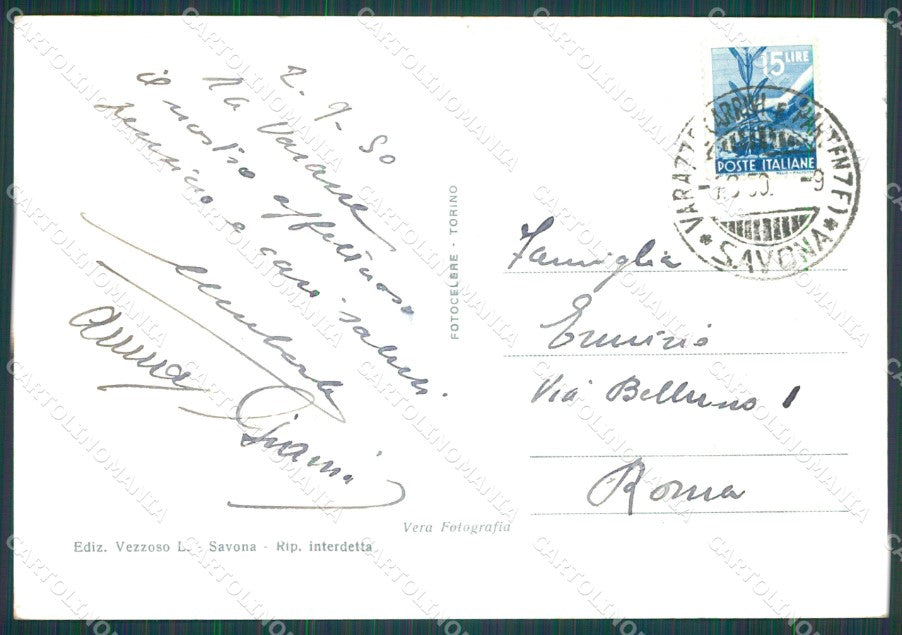 2-9-50
Da Varazze
il nostro affettuoso
pensiero e cari saluti.
Gianni
Anna
FOTOCELERE - TORINO
15 LIRE
POSTE ITALIANE
* VARAZZE (ARRIVI E PARTENZE) *
SAVONA
Famiglia
Via Belluno 1
Roma
Vera Fotografia
Ediz. Vezzoso L. - Savona - Rip. interdetta
CARTOLINOMANIA